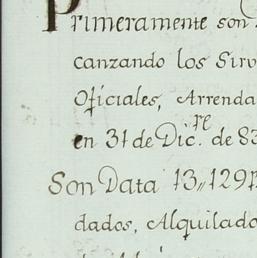 Primeramente son
canzando los Sirv
Oficiales, Arrenda
en 31 de Dic.re de 83
Son Data 13,,129
dados, Alquilado